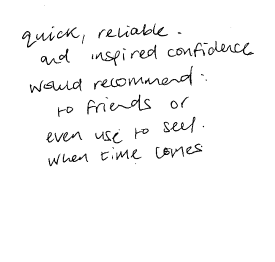 quick, reliable.
and inspired confidence
would recommend.
to friends or
even use to sell.
when time comes